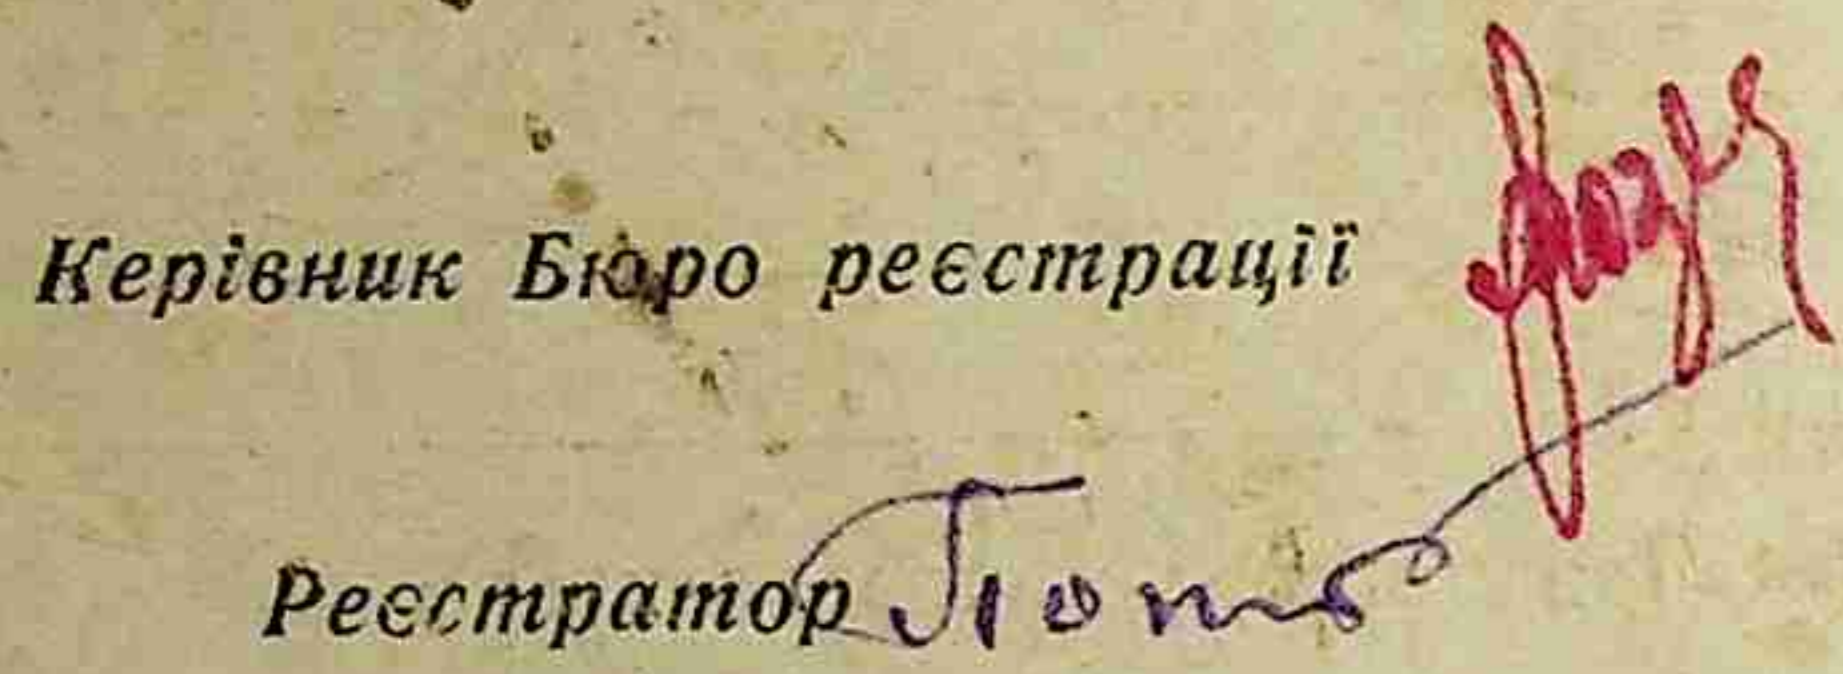 Керівник Бюро реєстрації
Реєстратор